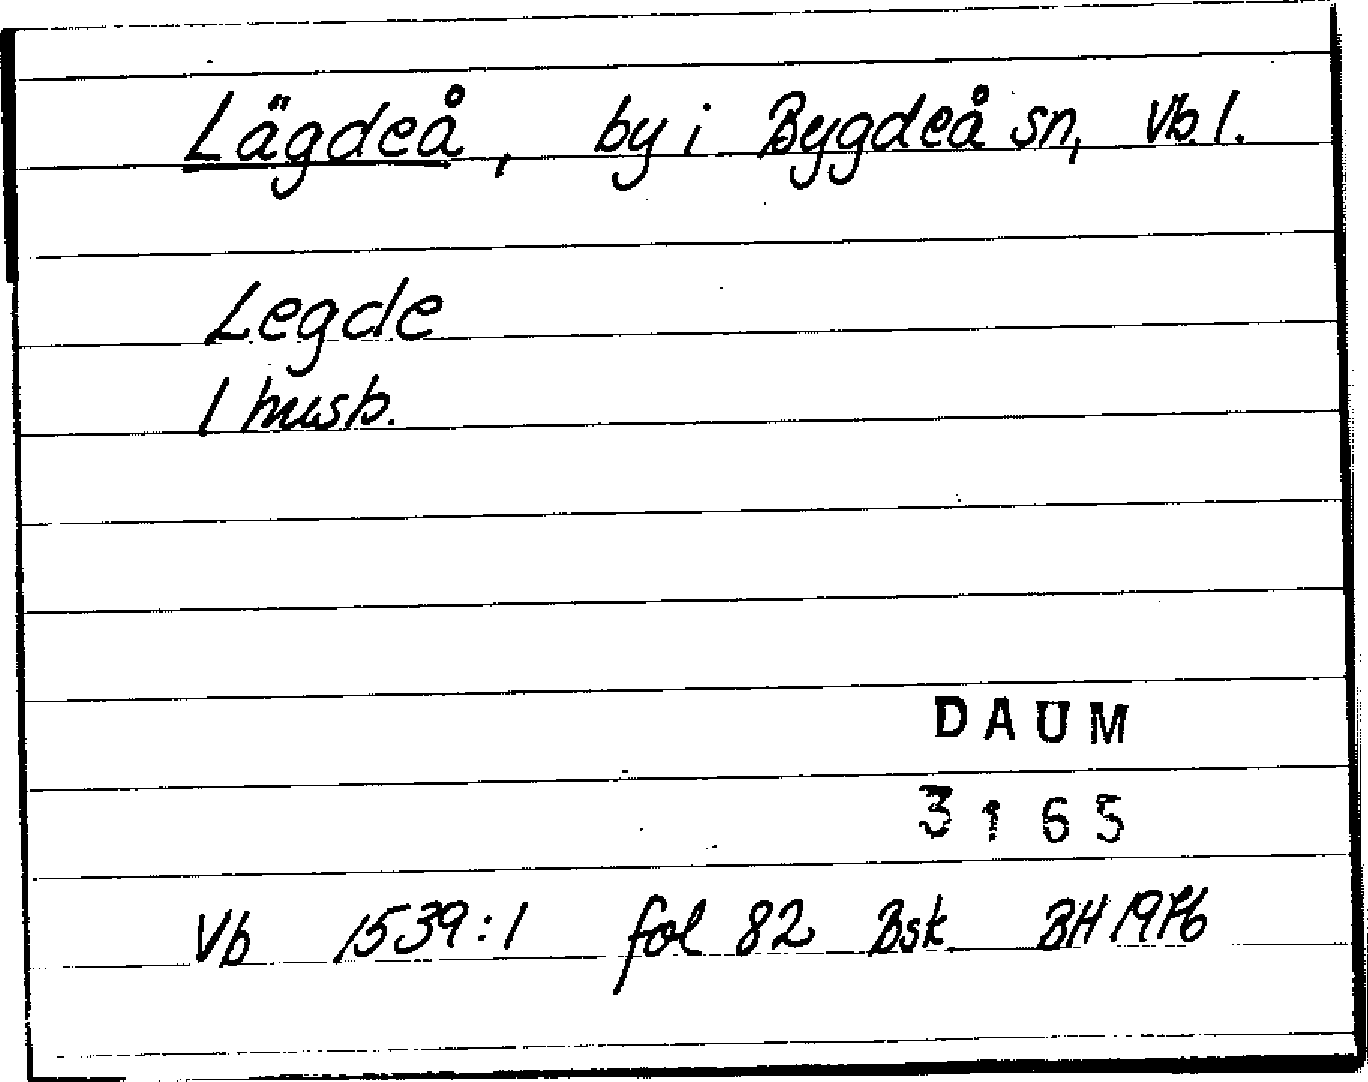 Lägdeå, by i Bygdeå sn, Vb. l.
Legde
1 husb.
DAUM
3165
Vb 1539:1 fol 82 Bsk BH 1976